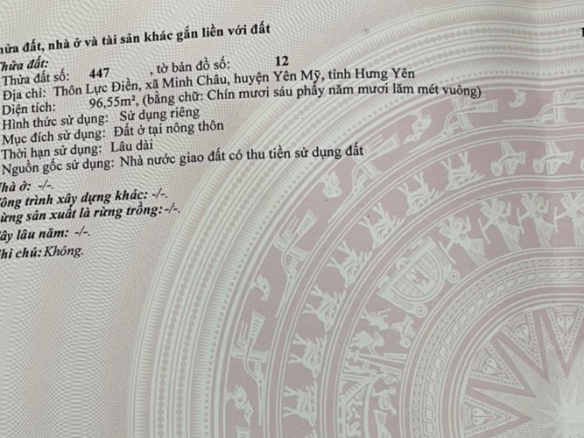 hửa đất, nhà ở và tài sản khác gắn liền với đất
Thửa đất:
Thửa đất số: 447 , tờ bản đồ số: 12
Địa chỉ: Thôn Lực Điền, xã Minh Châu, huyện Yên Mỹ, tỉnh Hưng Yên
Diện tích: 96,55m², (bằng chữ: Chín mươi sáu phẩy năm mươi lăm mét vuông)
Hình thức sử dụng: Sử dụng riêng
Mục đích sử dụng: Đất ở tại nông thôn
Thời hạn sử dụng: Lâu dài
Nguồn gốc sử dụng: Nhà nước giao đất có thu tiền sử dụng đất
Nhà ở: -/-.
ông trình xây dựng khác: -/-.
ừng sản xuất là rừng trồng: -/-.
ây lâu năm: -/-.
hi chú: Không.